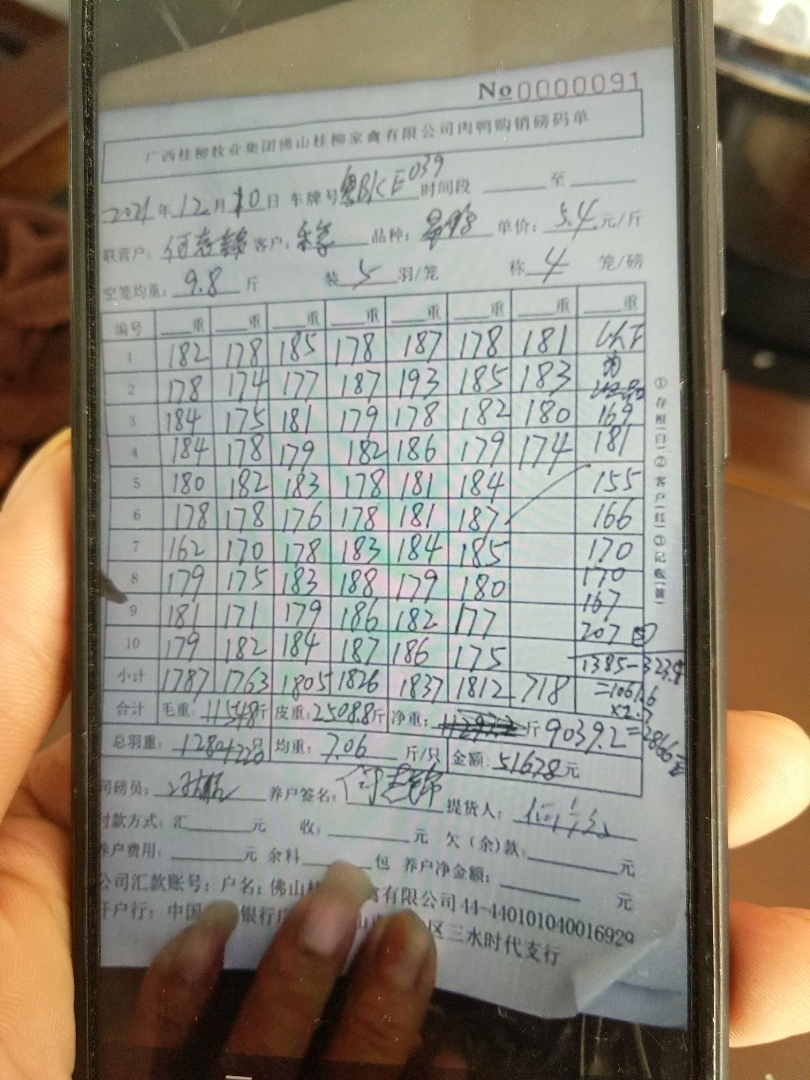 No 0000091
广西桂柳牧业集团佛山桂柳家禽有限公司肉鸭购销磅码单
2021年12月10日 车牌号 粤BKE039 时间段 至
联营户: 何志 客户: 品种: 单价: 5.4元/斤
空笼均重: 9.8斤 装5羽/笼 称4笼/磅
编号 重 重 重 重 重 重 重 重
1 182 178 185 178 187 178 181
2 178 174 177 187 193 185 183
3 184 175 181 179 178 182 180 169
4 184 178 179 182 186 179 174 181
5 180 182 183 178 181 184 155
6 178 178 176 178 181 187 166
7 162 170 178 183 184 185 170
8 179 175 183 188 179 180 170
9 181 171 179 186 182 177 167
10 179 182 184 187 186 175 207
小计 1787 1763 1805 1826 1837 1812 718 1385-323.4
=1061.6
×2.7
合计 毛重: 11548斤 皮重: 2508.8斤 净重: 斤 9039.2 =2866元
总羽重: 1280 均重: 7.06斤/只 金额: 51678元
司磅员: 养户签名: 提货人:
付款方式: 汇 元 收: 元 欠(余)款: 元
养户费用: 元 余料 包 养户净金额: 元
公司汇款账号: 户名: 佛山 禽有限公司44-440101040016929
开户行: 中国 银行 区三水时代支行
①存根(白)②客户(红)③记账(黄)